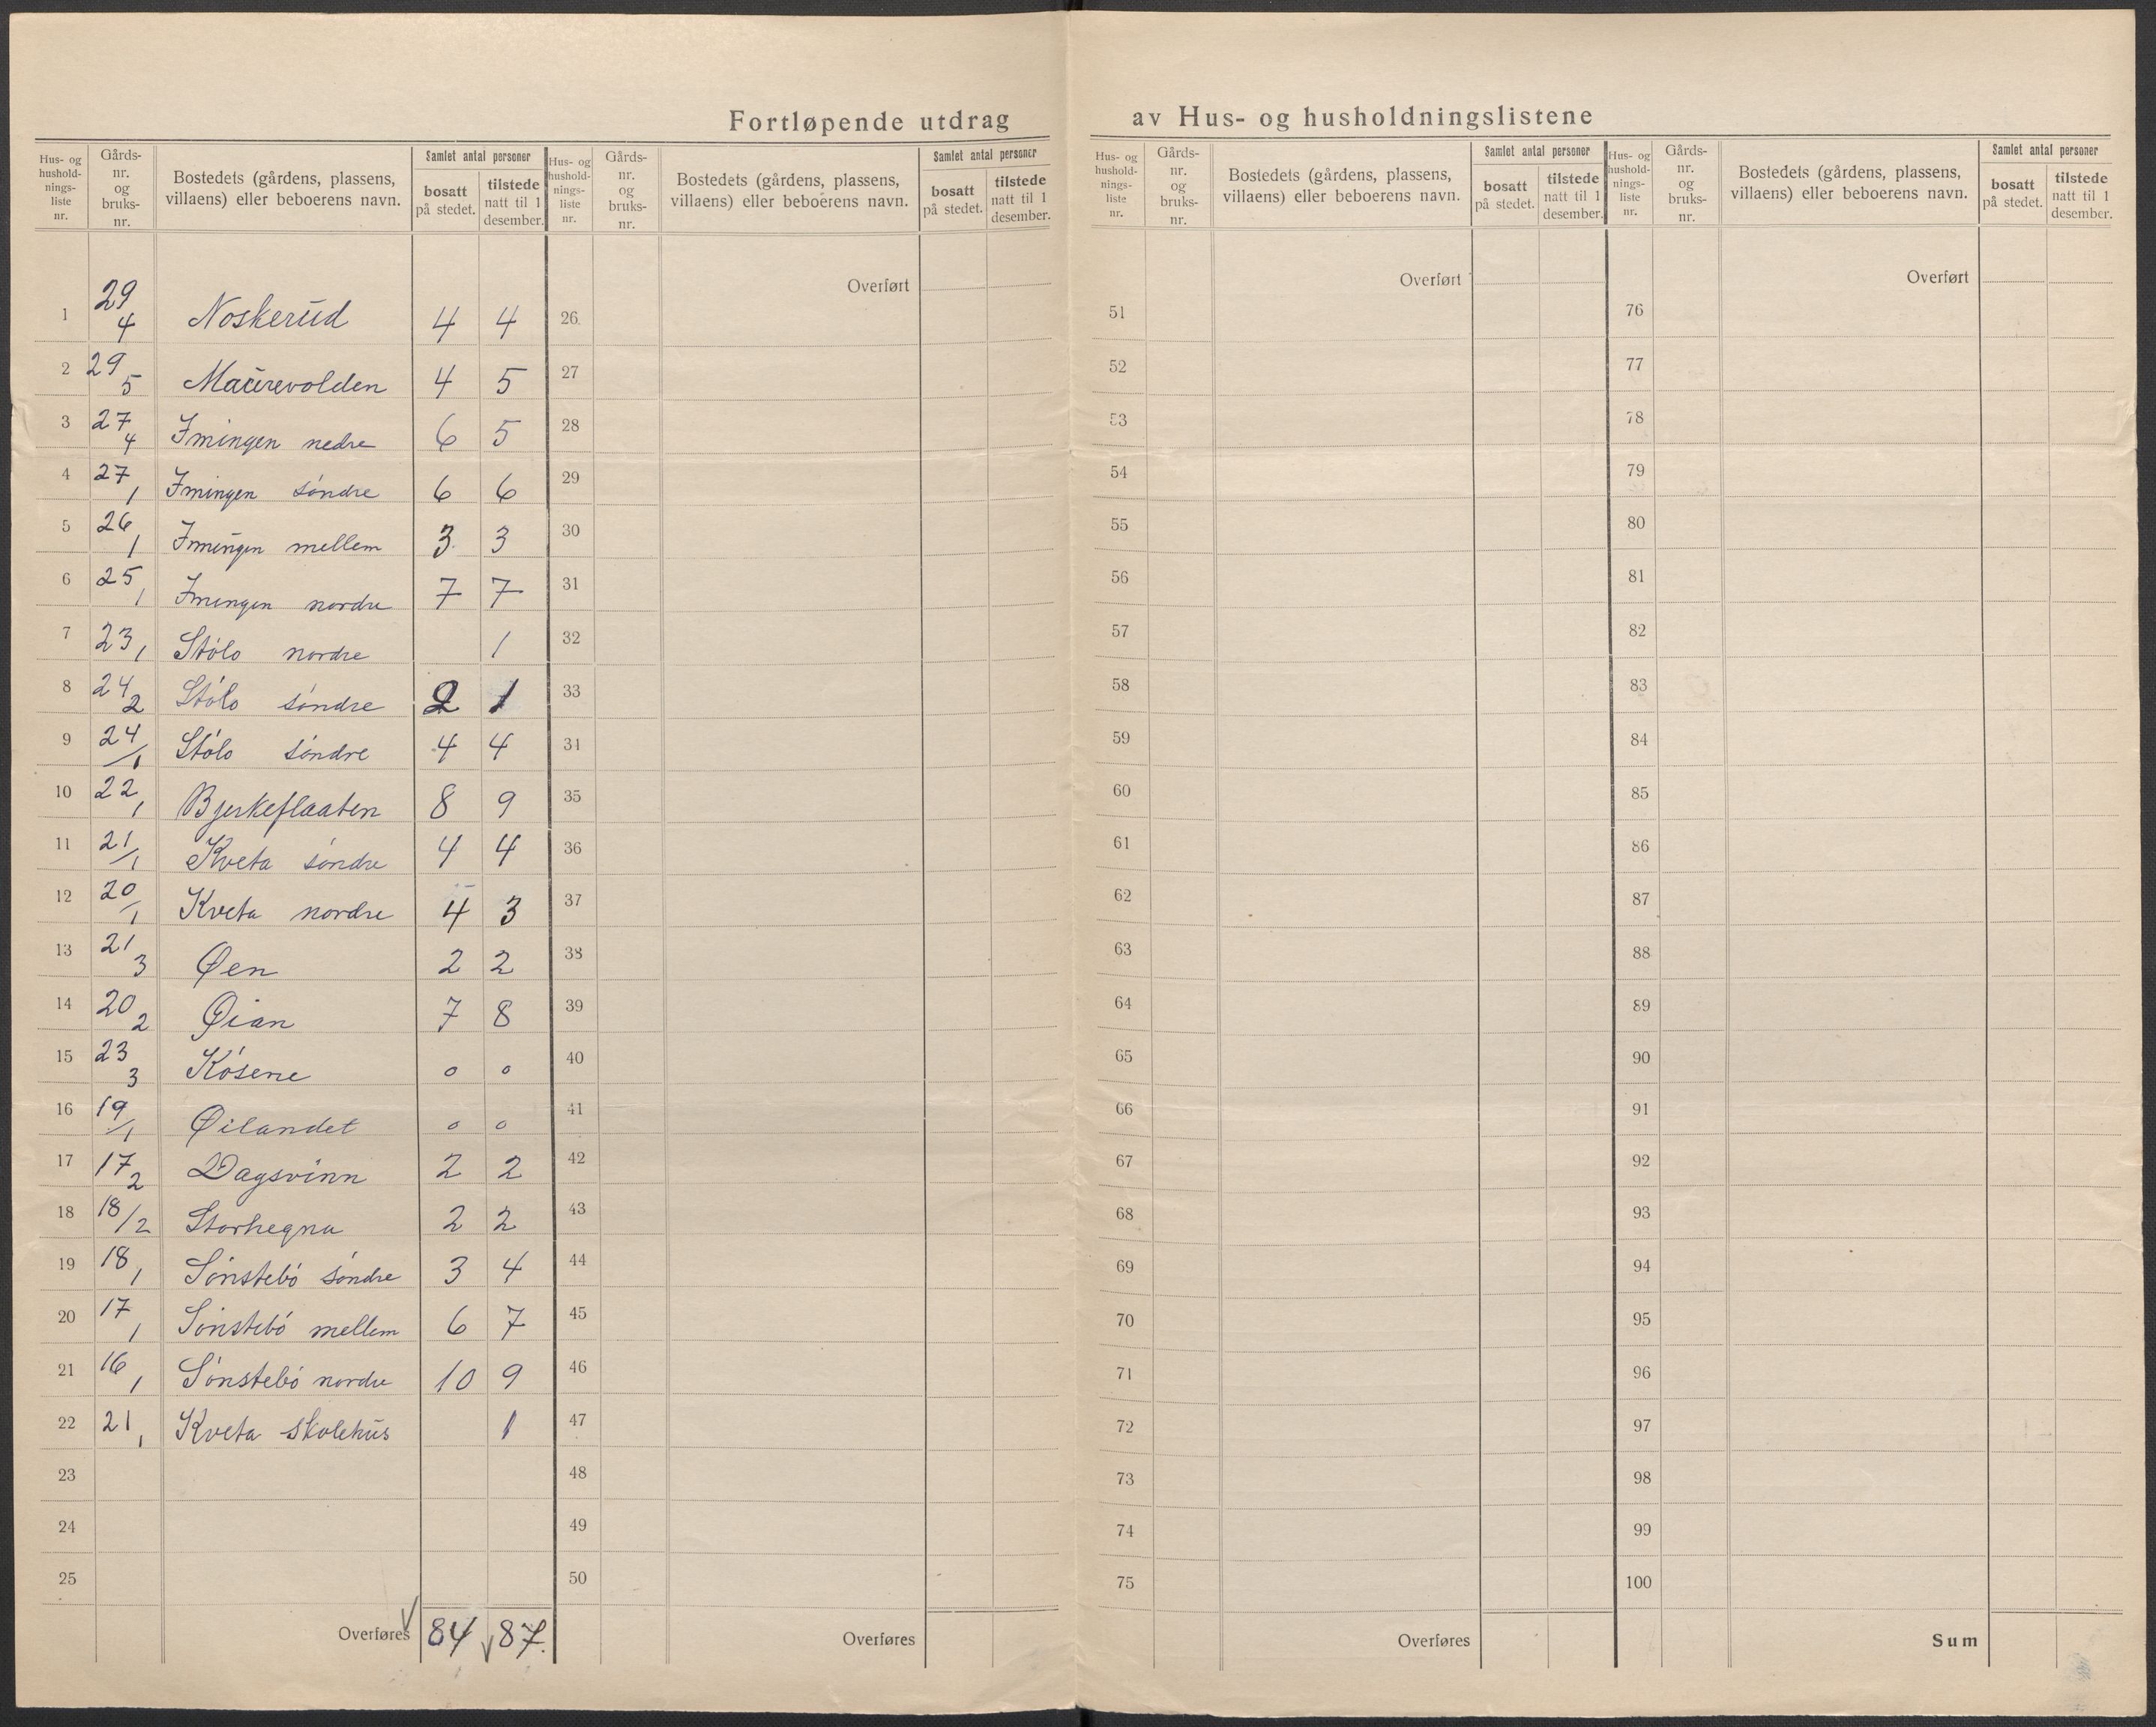 Fortløpende utdrag av Hus- og husholdningslistene
Hus- og hushold-nings-liste nr. Gårds-nr. og bruks-nr. Bostedets (gårdens, plassens, villaens) eller beboerens navn. Samlet antal personer bosatt på stedet. tilstede natt til 1 desember.
Hus- og hushold-nings-liste nr. Gårds-nr. og bruks-nr. Bostedets (gårdens, plassens, villaens) eller beboerens navn. Samlet antal personer bosatt på stedet. tilstede natt til 1 desember.
Hus- og hushold-nings-liste nr. Gårds-nr. og bruks-nr. Bostedets (gårdens, plassens, villaens) eller beboerens navn. Samlet antal personer bosatt på stedet. tilstede natt til 1 desember.
Hus- og hushold-nings-liste nr. Gårds-nr. og bruks-nr. Bostedets (gårdens, plassens, villaens) eller beboerens navn. Samlet antal personer bosatt på stedet. tilstede natt til 1 desember.
Overført Overført Overført
1 29 4 Noskerud 4 4 26 51 76
2 29 5 Maurevolden 4 5 27 52 77
3 27 4 Imingen nedre 6 5 28 53 78
4 27 1 Imingen söndre 6 6 29 54 79
5 26 1 Imingen mellem 3 3 30 55 80
6 25 1 Imingen nordre 7 7 31 56 81
7 23 1 Stólo nordre 1 32 57 82
8 24 2 Stólo söndre 2 1 33 58 83
9 24/1 Stólo söndre 4 4 34 59 84
10 22 1 Bjerkeflaaten 8 9 35 60 85
11 21/1 Kveta söndre 4 4 36 61 86
12 20/1 Kveta nordre 4 3 37 62 87
13 21 3 Øen 2 2 38 63 88
14 20 2 Øian 7 8 39 64 89
15 23 3 Kósene 0 0 40 65 90
16 19/1 Øilandet 0 0 41 66 91
17 17 2 Dagsvinn 2 2 42 67 92
18 18/2 Storhegna 2 2 43 68 93
19 18 1 Sónstebó söndre 3 4 44 69 94
20 17 1 Sónstebó mellem 6 7 45 70 95
21 16 1 Sónstebó nordre 10 9 46 71 96
22 21 1 Kveta skolehus 1 47 72 97
23 48 73 98
24 49 74 99
25 50 75 100
Overføres 84 87. Overføres Overføres Sum